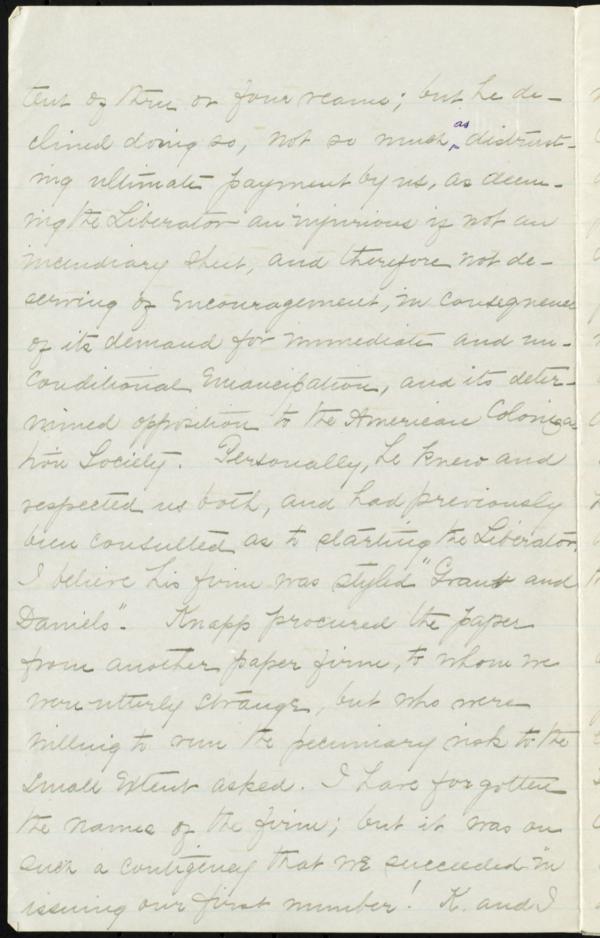 tent of three or four reams; but he de-
clined doing so, not so much as distrust-
ing ultimate payment by us, as deem-
ing the Liberator an injurious if not an
incendiary sheet, and therefore not de-
serving of encouragement, in consequence
of its demand for immediate and un-
conditional emancipation, and its deter-
mined opposition to the American Coloniza-
tion Society. Personally, he knew and
respected us both, and had previously
been consulted as to starting the Liberator.
I believe his firm was styled "Grant and
Daniels". Knapp procured the paper
from another paper firm, to whom we
were utterly strange, but who were
willing to run the pecuniary risk to the
small extent asked. I have forgotten
the names of the firm; but it was on
such a contigency that we succeeded in
issuing our first number! K. and I